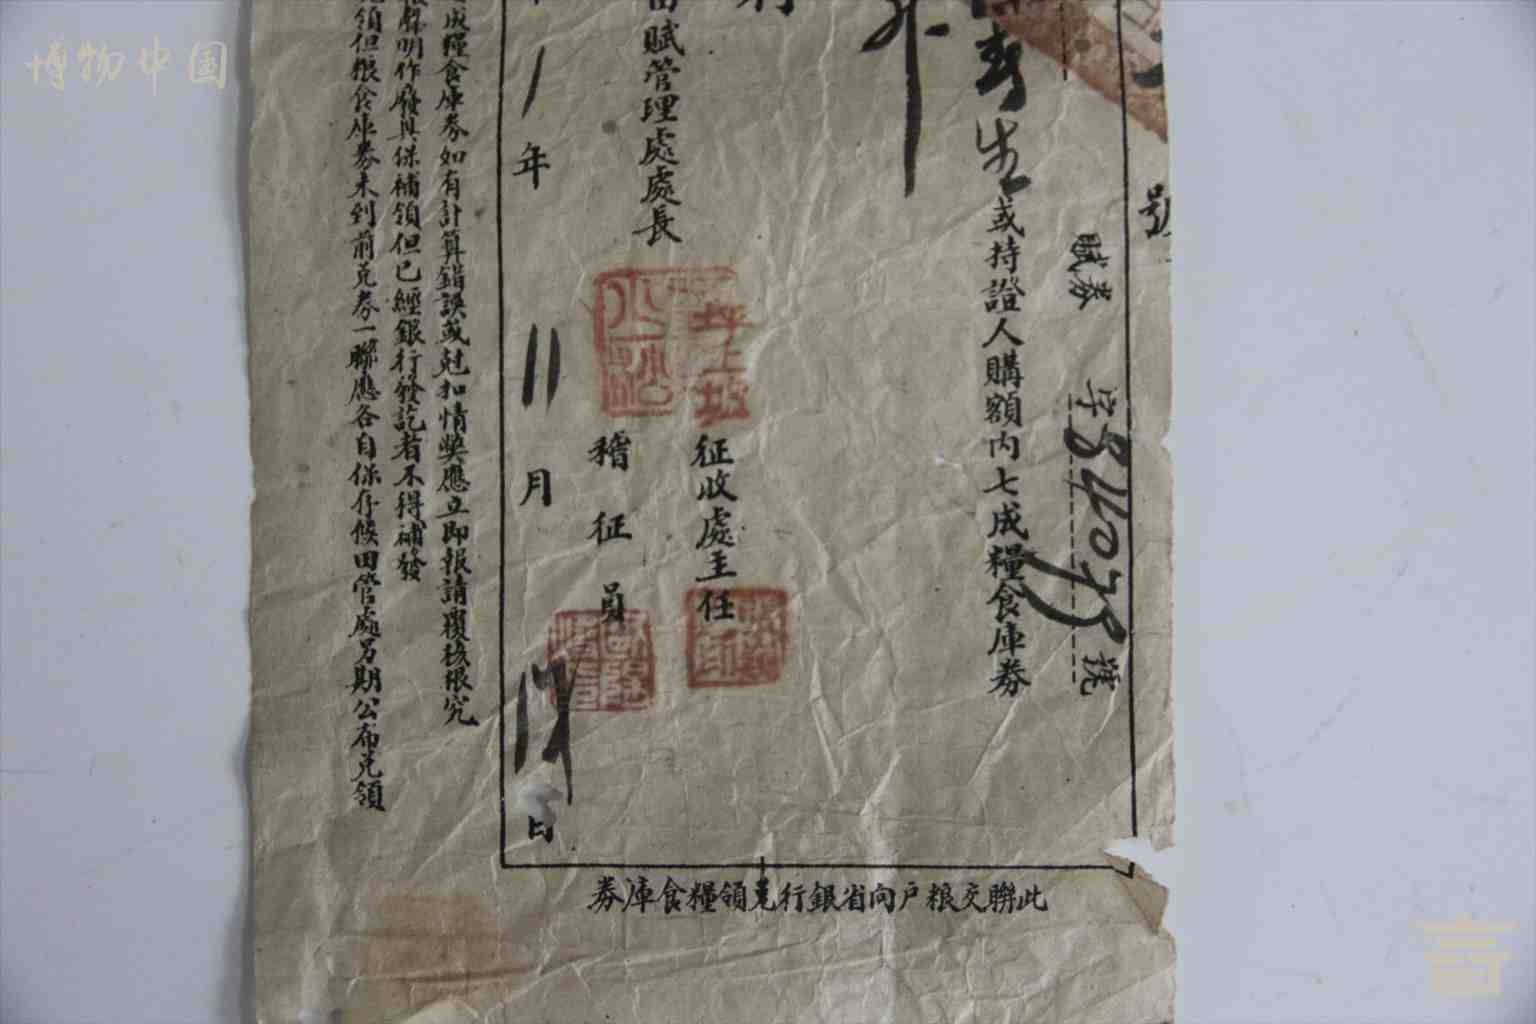 博物中国
號
賦券 字84075號
壽生或持證人購額內七成糧食庫券
升
坪上
征收處主任
田賦管理處處長
稽征員
1年11月17日
成糧食庫券如有計算錯誤或尅扣情獘應立即報請覆核限究
聲明作廢具保補領但已經銀行發訖者不得補發
領但粮食庫券未到前兌券一聯應各自保存候田管處另期公布兌領
此聯交粮戶向省銀行兌領糧食庫券